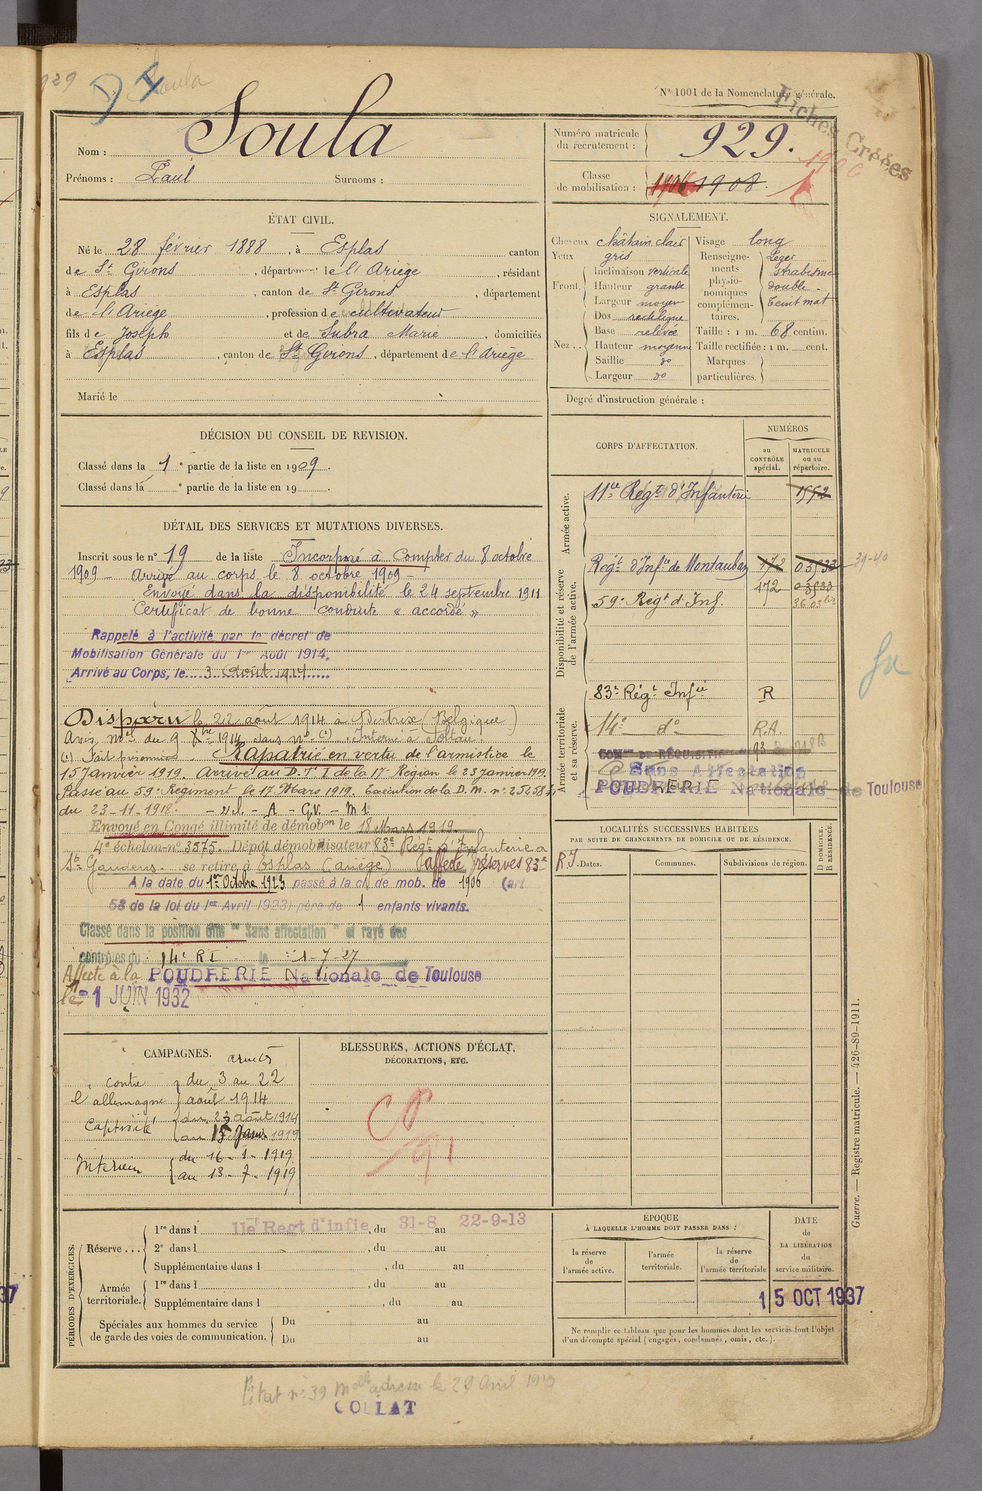 929
Soula
N° 1001 de la Nomenclature générale.
Fiches Créées
Nom : Soula
Prénoms : Paul Surnoms :
Numéro matricule du recrutement : 929.
Classe de mobilisation : 1908.
1906
ÉTAT CIVIL.
Né le 28 février 1888, à Esplas canton
de St Girons, département de l'Ariège, résidant
à Esplas, canton de St Girons, département
de l'Ariège, profession de cultivateur
fils de Joseph et de Subra Marie, domiciliés
à Esplas, canton de St Girons, département de l'Ariège
Marié le
SIGNALEMENT.
Cheveux châtain clair
Yeux gris
Front. Inclinaison verticale
Hauteur grande
Largeur moyen
Nez.. Dos rectiligne
Base relevée
Hauteur moyenne
Saillie do
Largeur do
Visage long
Renseignements physionomiques complémentaires. Léger strabisme double. Teint mat
Taille : 1 m. 68 centim.
Taille rectifiée : 1 m. cent.
Marques particulières.
Degré d'instruction générale :
DÉCISION DU CONSEIL DE REVISION.
Classé dans la 1e partie de la liste en 1909.
Classé dans la e partie de la liste en 19 .
DÉTAIL DES SERVICES ET MUTATIONS DIVERSES.
Inscrit sous le n° 19 de la liste Incorporé à compter du 8 octobre
1909 – Arrivé au corps le 8 octobre 1909 –
Envoyé dans la disponibilité le 24 septembre 1911
Certificat de bonne conduite « accordé »
Rappelé à l'activité par le décret de
Mobilisation Générale du 1er Août 1914,
Arrivé au Corps, le 3 Août 1914
Disparu le 22 août 1914 à Bertrix (Belgique)
(1) Fait prisonnier. Rapatrié en vertu de l'armistice le
15 Janvier 1919. Arrivé au D.T.I de la 17e Région le 23 janvier 1919.
Passé au 59e Régiment le 17 Mars 1919. Exécution de la D.M. n°
du 23-11-1918.
Envoyé en Congé illimité de démobon le 18 Mars 1919
4e échelon n° 3875. Dépôt démobilisateur 83e Régt d'Infanterie à
St Gaudens. se retire à Esplas (Ariège) Affecté réserves 83e R.I.
A la date du 1er Octobre 1923 passé à la cl. de mob. de 1906 (art
58 de la loi du 1er Avril 1923) père de 1 enfants vivants.
Classé dans la position dite "Sans affectation" et rayé des
contrôles du 14e RI le 1-7-27
Affecté à la POUDRERIE Nationale de Toulouse
le 1 JUIN 1932
CORPS D'AFFECTATION.
NUMÉROS
au CONTRÔLE spécial.
MATRICULE ou au répertoire.
Armée active.
11e Régt d'Infanterie 1552
Disponibilité et réserve de l'armée active.
Régt d'Infie de Montauban 172 39-40
59e Régt d'Inf. 172
Armée territoriale et sa réserve.
83e Régt Infie R
14e do R.A.
Sans Affectation
POUDRERIE Nationale de Toulouse
LOCALITÉS SUCCESSIVES HABITÉES
PAR SUITE DE CHANGEMENTS DE DOMICILE OU DE RÉSIDENCE.
Dates.
Communes.
Subdivisions de région.
D DOMICILE. R RÉSIDENCE.
CAMPAGNES.
contre l'allemagne du 3 au 22 août 1914
Captivité du 23 août 1914 au 15 Janv 1919
Intérieur du 16-1-1919 au 13-7-1919
BLESSURES, ACTIONS D'ÉCLAT,
DÉCORATIONS, ETC.
PÉRIODES D'EXERCICES.
Réserve... 1re dans l 11e Regt d'infie, du 31-8 au 22-9-13
2e dans l , du au
Supplémentaire dans l , du au
Armée territoriale. 1re dans l , du au
Supplémentaire dans l , du au
Spéciales aux hommes du service de garde des voies de communication. Du au
Du au
ÉPOQUE
À LAQUELLE L'HOMME DOIT PASSER DANS :
la réserve de l'armée active.
l'armée territoriale.
la réserve de l'armée territoriale
DATE de LA LIBÉRATION du service militaire.
15 OCT 1937
Ne remplir ce tableau que pour les hommes dont les services font l'objet
d'un décompte spécial (engagés, condamnés, omis, etc.).
Guerre. — Registre matricule. — 426-89-1911.
COLLAT